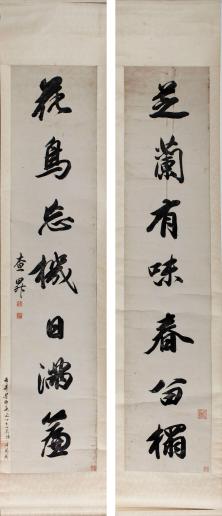 芝蘭有味春留榻
花鳥忘機日滿簾
查昇